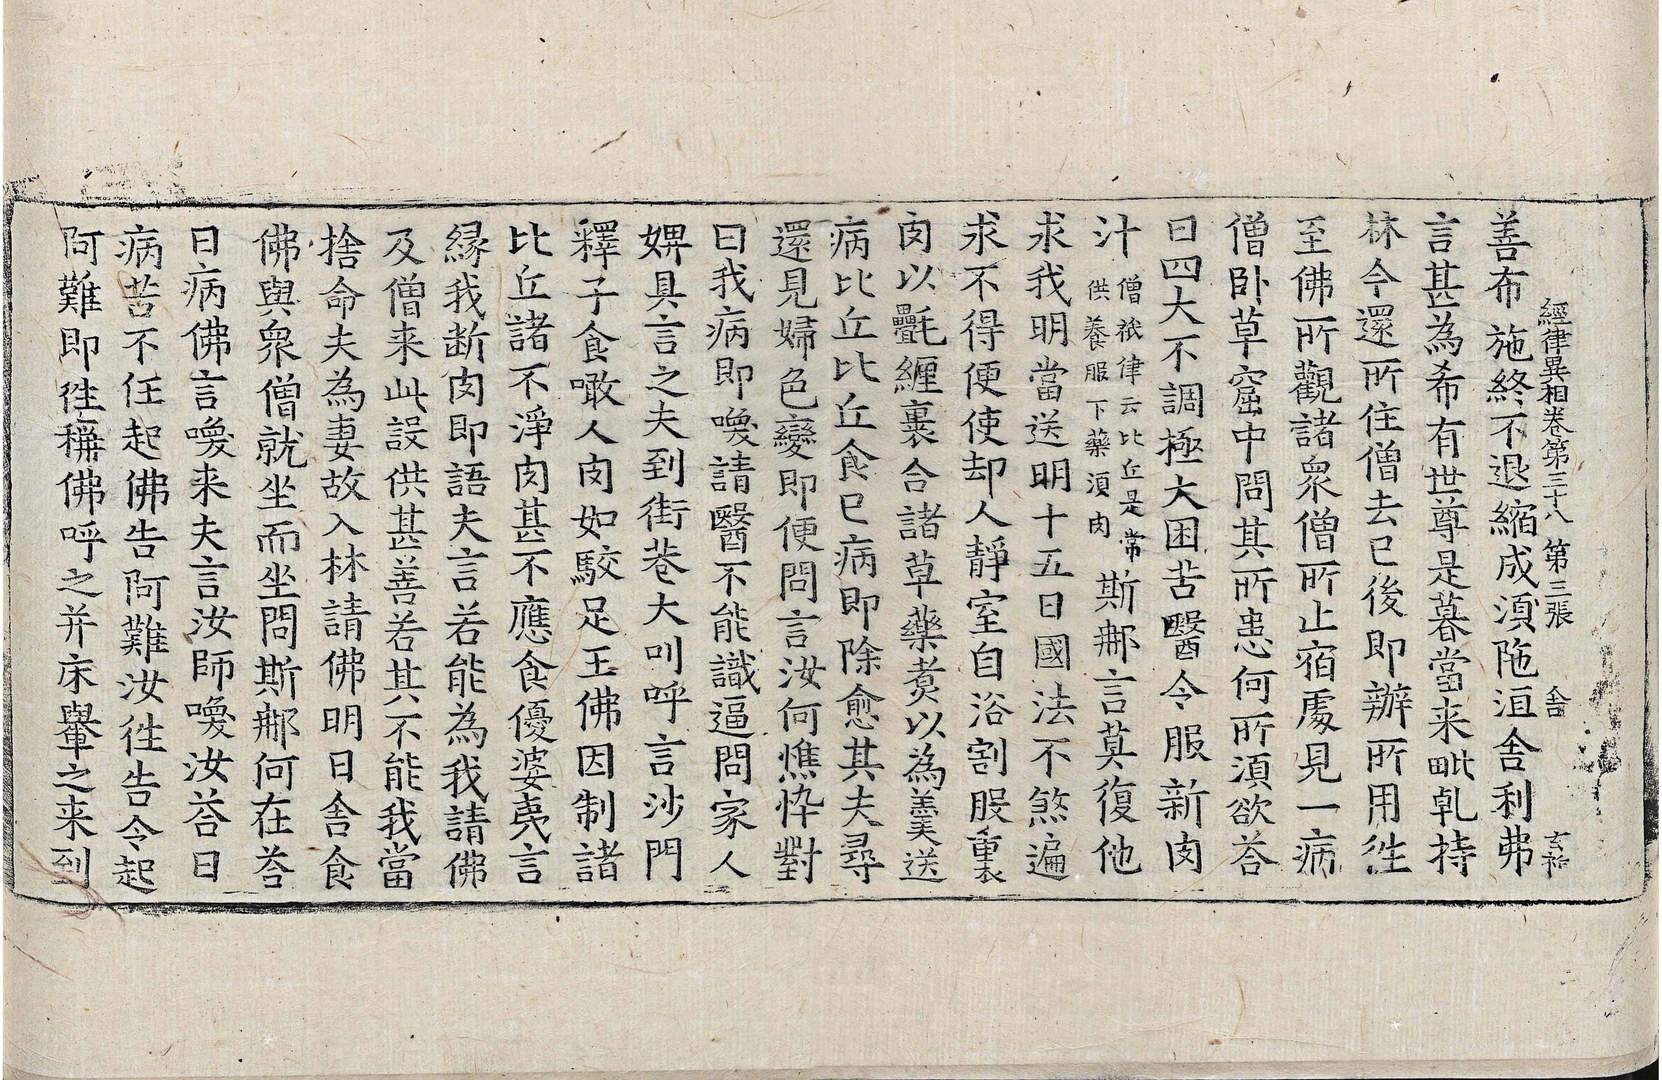 經律異相卷第三十八 第三張 舍 玄祐
善布施終不退縮成湏陁洹舍利弗
言甚為希有世尊是暮當来毗乹持
林今還所住僧去已後即辦所用徃
至佛所觀諸衆僧所止宿處見一病
僧卧草窟中問其所患何所湏欲荅
曰四大不調極大困苦醫令服新肉
汁 僧祇律云比丘是常供養服下藥湏肉 斯那言莫復他
求我明當送明十五日國法不煞遍
求不得便使却人靜室自浴割股裏
肉以氎纏裹合諸草藥煑以為羮送
病比丘比丘食已病即除愈其夫尋
還見婦色變即便問言汝何憔悴對
曰我病即喚請醫不能識逼問家人
婢具言之夫到街巷大叫呼言沙門
釋子食噉人肉如駮足王佛因制諸
比丘諸不淨肉甚不應食優婆夷言
縁我断肉即語夫言若能為我請佛
及僧来此設供甚善若其不能我當
捨命夫為妻故入林請佛明日舍食
佛與衆僧就坐而坐問斯那何在荅
曰病佛言喚来夫言汝師喚汝荅曰
病苦不任起佛告阿難汝徃告令起
阿難即徃稱佛呼之并床轝之来到